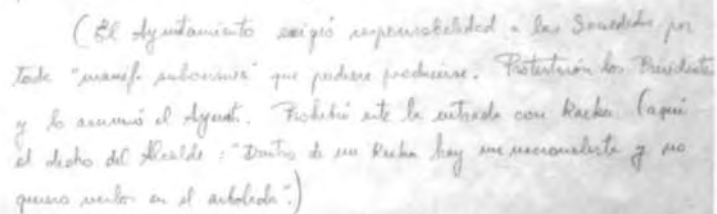 (El Ayuntamiento exigió responsabilidad a las Sociedades por
toda "manif. subversiva" que pudiese producirse. Protestarón los Presidentes
y lo asumió el Ayunt. Prohibió este la entrada con Kaiku (aquí
el dicho del Alcalde: "Dentro de un Kaiku hay un nacionalista y no
quiero verlos en el arbolada".)